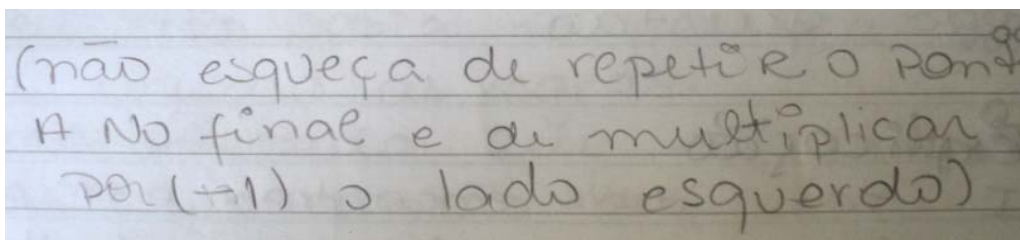 (não esqueça de repetir o ponto
A No final e de multiplicar
por (-1) o lado esquerdo)